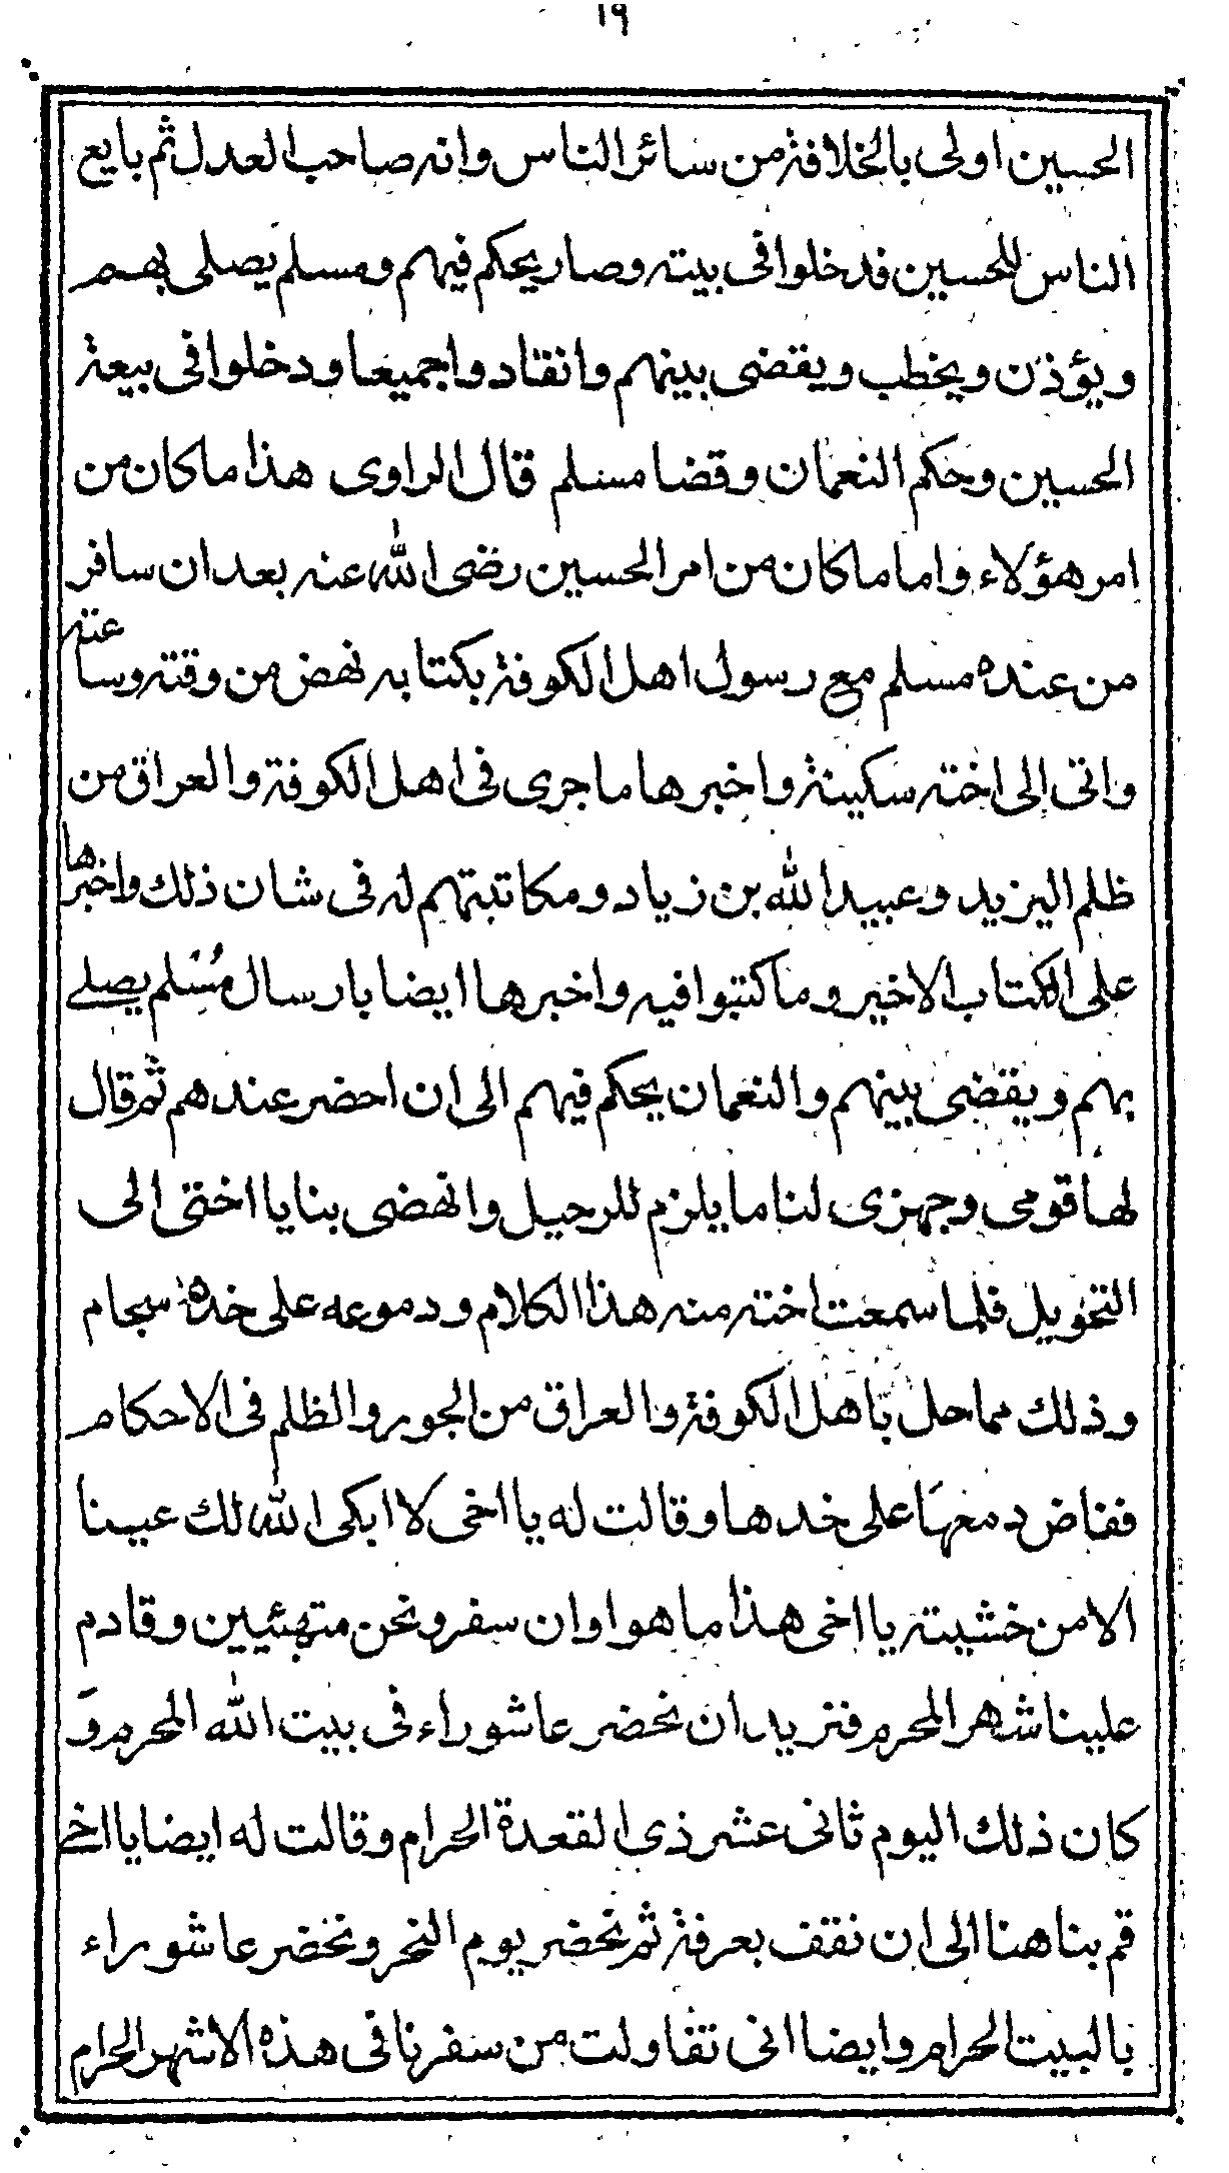 ١٩
الحسين اولى بالخلافة من سائر الناس وانه صاحب العدل ثم بايع
الناس للحسين فدخلوا فى بيته وصار يحكم فيهم ومسلم يصلى بهم
ويؤذن ويخطب ويقضى بينهم وانقادوا جميعا ودخلوا فى بيعة
الحسين وحكم النعمان وقضا مسلم قال الراوى هذا ما كان من
امر هؤلاء واما ما كان من امر الحسين رضى الله عنه بعد ان سافر
من عنده مسلم مع رسول اهل الكوفة بكتابه نهض من وقته وساعته
واتى الى اخته سكينة واخبرها ما جرى فى اهل الكوفة والعراق من
ظلم اليزيد وعبيد الله بن زياد ومكاتبتهم له فى شان ذلك واخبرها
على الكتاب الاخير وما كتبوا فيه واخبرها ايضا بارسال مُسْلم يصلے
بهم ويقضى بينهم والنعمان يحكم فيهم الى ان احضر عندهم ثم قال
لها قومى وجهزى لنا ما يلزم للرحيل وانهضى بنا يا اختى الى
التحويل فلما سمعت اخته منه هذا الكلام ودموعه على خده سجام
وذلك مما حل باهل الكوفة والعراق من الجور والظلم فى الاحكام
ففاض دمعها على خدها وقالت له يا اخى لا ابكى الله لك عينا
الا من خشيته يا اخى هذا ما هو اوان سفر ونحن متهيئين وقادم
علينا شهر المحرم فتريد ان نحضر عاشوراء فى بيت الله المحرم وَ
كان ذلك اليوم ثانى عشر ذى القعدة الحرام وقالت له ايضا يا اخے
قم بنا هنا الى ان نقف بعرفة ثم نحضر يوم النحر ونحضر عاشوراء
بالبيت الحرام وايضا انى تفاولت من سفرنا فى هذه الاشهر الحرام